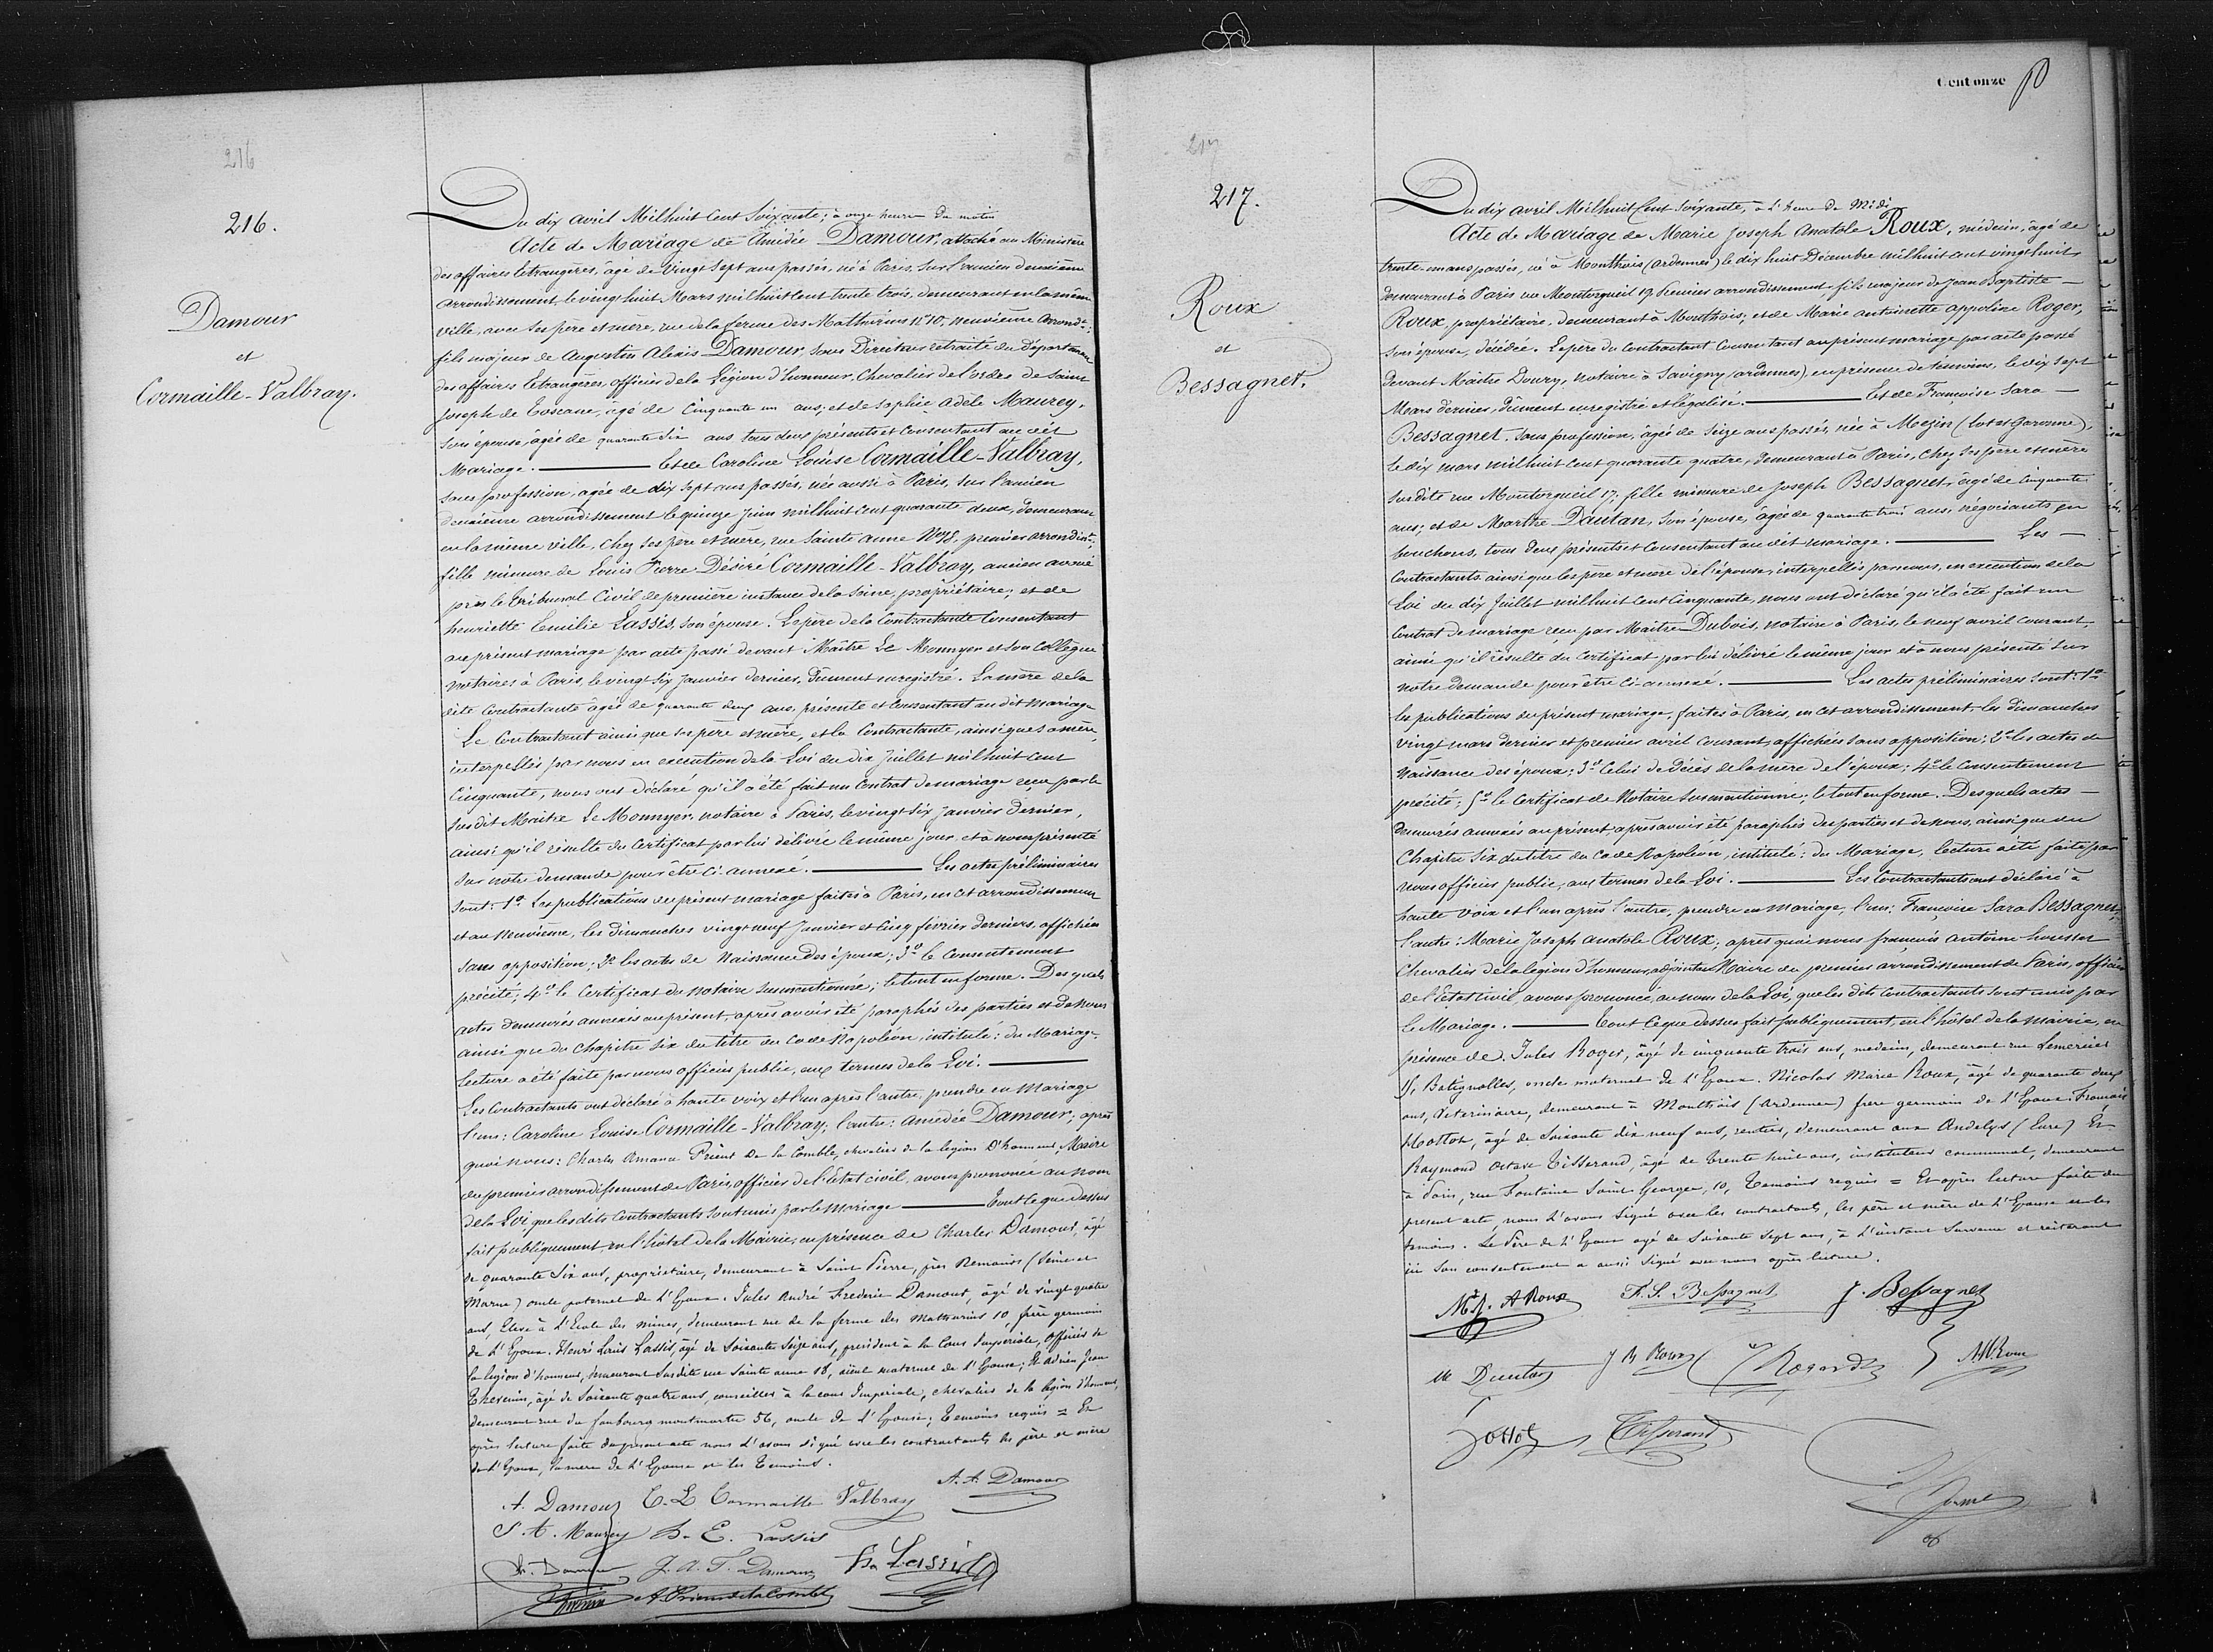 216
216.
Damour
et
Cormaille-Valbray.
Du dix avril Mil huit Cent Soixante, à onze heures du matin
Acte de Mariage de Amédée Damour, attaché au Ministère
des affaires Etrangères, âgé de vingt sept ans passés, né à Paris, sur l'ancien deuxième
arrondissement, le vingt huit Mars mil huit cent trente trois, demeurant en la même
ville, avec ses père et mère, rue de la ferme des Mathurins N° 10, neuvième arrondt;
fils majeur de Augustin Alexis Damour, Sous Directeur retraité du Département
des affaires Etrangères, officier de la Légion d'honneur, Chevalier de l'ordre de Saint
Joseph de Toscane, âgé de Cinquante un ans; et de Sophie Adèle Maurey,
son épouse, âgée de quarante six ans tous deux présents et Consentant au dit
Mariage. — Et de Caroline Louise Cormaille-Valbray,
sans profession, agée de dix sept ans passés, née aussi à Paris, sur l'ancien
deuxième arrondissement le quinze Juin mil huit cent quarante deux, demeurant
en la même ville, chez ses père et mère, rue Sainte anne N° 18, premier arrondist;
fille mineure de Louis Pierre Désiré Cormaille-Valbray, ancien avoué
près le Tribunal Civil de première instance de la Seine, propriétaire; et de
henriette Emilie Lassis, son épouse. Le père de la Contractante Consentant
au présent mariage par acte passé devant Maître Le Monnyer et son Collègue
notaires à Paris, le vingt six Janvier dernier, dûment enregistré. La mère de la
dite Contractante agée de quarante deux ans, présente et consentant au dit Mariage
Le Contractant ainsi que ses père et mère, et la Contractante, ainsi que sa mère,
interpellés par nous en exécution de la Loi du dix Juillet mil huit cent
Cinquante, nous ont déclaré qu'il a été fait un Contrat de mariage reçu par le
susdit Maître Le Monnyer, notaire à Paris, le vingt six Janvier dernier,
ainsi qu'il résulte du Certificat par lui délivré le même jour et à nous présenté
sur notre demande pour être ci annexé. — Les actes préliminaires
sont: 1° Les publications du présent mariage faites à Paris, en cet arrondissement
et au Neuvième, les dimanches vingt neuf Janvier et Cinq février derniers, affichées
sans opposition; 2° les actes de Naissance des époux; 3° le Consentement
précité; 4° le Certificat du notaire susmentionné; le tout en forme. Des quels
actes demeurés annexés au présent, après avoir été paraphés des parties et de nous
ainsi que du Chapitre six du titre du Code Napoléon, intitulé: du Mariage.
Lecture a été faite par nous officier public, aux termes de la Loi. —
Les Contractants ont déclaré à haute voix et l'un après l'autre, prendre en Mariage
l'un: Caroline Louise Cormaille-Valbray; l'autre: Amédée Damour; après
quoi nous: Charles Armand Prieur de la Comble, chevalier de la légion d'honneur, Maire
du premier arrondissement de Paris, officier de l'Etat civil, avons prononcé au nom
de la Loi que les dits Contractants sont unis par le Mariage — Tout ce que dessus
fait publiquement en l'hôtel de la Mairie, en présence de Charles Damour, âgé
de quarante six ans, propriétaire, demeurant à Saint Pierre, près Nemours (Seine et
Marne) oncle paternel de l'Epoux. Jules André Frédéric Damour, âgé de vingt quatre
ans, Elève à l'Ecole des mines, demeurant rue de la ferme des Mathurins 10, frère germain
de l'Epoux. Henri Louis Lassis, âgé de Soixante Seize ans, président à la Cour Impériale, Officier de
la légion d'honneur, demeurant susdite rue Sainte anne 18, aïeul maternel de l'Epouse; Et Adrien Jean
Thevenin, âgé de Soixante quatre ans, conseiller à la cour Impériale, chevalier de la légion d'honneur,
demeurant rue du faubourg montmartre 56, oncle de l'Epouse; Temoins requis = Et
après lecture faite du présent acte nous l'avons signé avec les contractants les père et mère
de l'Epoux, la mère de l'Epouse et les Temoins.
A. Damour C. L Cormaille Valbray A. A. Damour
S. A. Maurey h. E. Lassis
Ch. Damour J. A. F. Damour Lassis
Thevenin A. Prieur de la Comble
Cent onze
217
217.
Roux
et
Bessagnet.
Du dix avril Mil huit Cent Soixante, à l'heure de Midi
Acte de Mariage de Marie Joseph Anatole Roux, médecin, âgé de
trente-un ans passés, né à Monthois (ardennes) le dix huit Décembre mil huit cent vingt huit,
demeurant à Paris rue Montorgueil 17, Premier arrondissement, fils majeur de Jean Baptiste —
Roux, propriétaire, demeurant à Monthois; et de Marie antoinette appoline Roger,
son épouse, décédée. Le père du Contractant Consentant au présent mariage par acte passé
devant Maître Doury, notaire à Savigny (ardennes), en présence de témoins, le dix sept
Mars dernier, dûment enregistré et légalisé. — Et de Françoise Sara —
Bessagnet, sans profession, âgée de Seize ans passés, née à Mezin (Lot et Garonne),
Le dix mars mil huit cent quarante quatre, demeurant à Paris, chez ses père et mère
susdite rue Montorgueil 17; fille mineure de Joseph Bessagnet, âgé de Cinquante
ans; et de Marthe Dautan, son épouse, âgée de quarante trois ans, négociants en
bouchons, tous deux présents et Consentant au dit mariage. — Les —
Contractants ainsi que les père et mère de l'épouse, interpellés par nous, en exécution de la
Loi du dix Juillet mil huit cent Cinquante, nous ont déclaré qu'il a été fait un
Contrat de mariage reçu par Maître Dubois, notaire à Paris, le neuf avril courant,
ainsi qu'il résulte du Certificat par lui délivré le même jour et à nous présenté sur
notre demande pour être ci-annexé. — Les actes préliminaires sont: 1°
les publications du présent mariage, faites à Paris, en cet arrondissement, les dimanches
vingt mars dernier et premier avril courant, affichées sans opposition; 2° les actes de
Naissance des époux; 3° Celui de Décès de la mère de l'époux; 4° le Consentement
précité; 5° le Certificat de Notaire susmentionné; le tout en forme. Desquels actes —
demeurés annexés au présent, après avoir été paraphés des parties et de nous, ainsi que du
Chapitre Six du titre du Code Napoléon, intitulé: du Mariage, lecture a été faite par
nous officier public, aux termes de la Loi. — Les Contractants ont déclaré à
haute voix et l'un après l'autre, prendre en mariage, l'un: Françoise Sara Bessagnet;
l'autre: Marie Joseph anatole Roux; après quoi nous françois antoine
Chevalier de la légion d'honneur, adjoint au Maire du premier arrondissement de Paris, officier
de l'Etat Civil, avons prononcé, au nom de la Loi, que les dits Contractants sont unis par
le Mariage. — Tout ce que dessus fait publiquement, en l'hôtel de la mairie, en
présence de Jules Roger, âgé de cinquante trois ans, medecin, demeurant rue Lemercier
Batignolles, oncle maternel de l'Epoux. Nicolas Marie Roux, âgé de quarante deux
ans, Veterinaire, demeurant à Monthois (Ardennes) frère germain de l'Epoux. François
Hottot, âgé de Soixante dix neuf ans, rentier, demeurant aux Andelys (Eure) Et
Raymond Octave Tisserand, âgé de trente huit ans, instituteur communal, demeurant
à Paris, rue Fontaine Saint Georges, 10, Temoins requis = Et après lecture faite du
present acte, nous l'avons signé avec les contractants, les père et mère de l'Epouse et les
temoins. Le Père de l'Epoux agé de Soixante Sept ans, à l'instant survenu et réiterant
ici son consentement a aussi signé avec nous après lecture.
M. J. A Roux F. S. Bessagnet J. Bessagnet
M Dautan J B Roux N M Roux
Hottot Tisserand